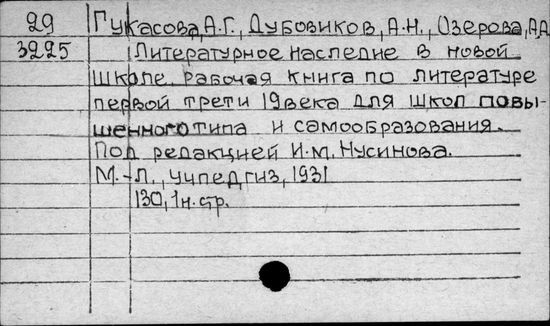 29 Гукасова, А.Г., Дубовиков, А.Н., Озерова, А.А
3225 Литературное наследие в новой
школе. Рабочая книга по литературе
первой трети 19 века для школ повы-
шенного типа и самообразования.
Под редакцией И.М. Нусинова.
М.-Л., Учпедгиз, 1931
130, 1 н. стр.